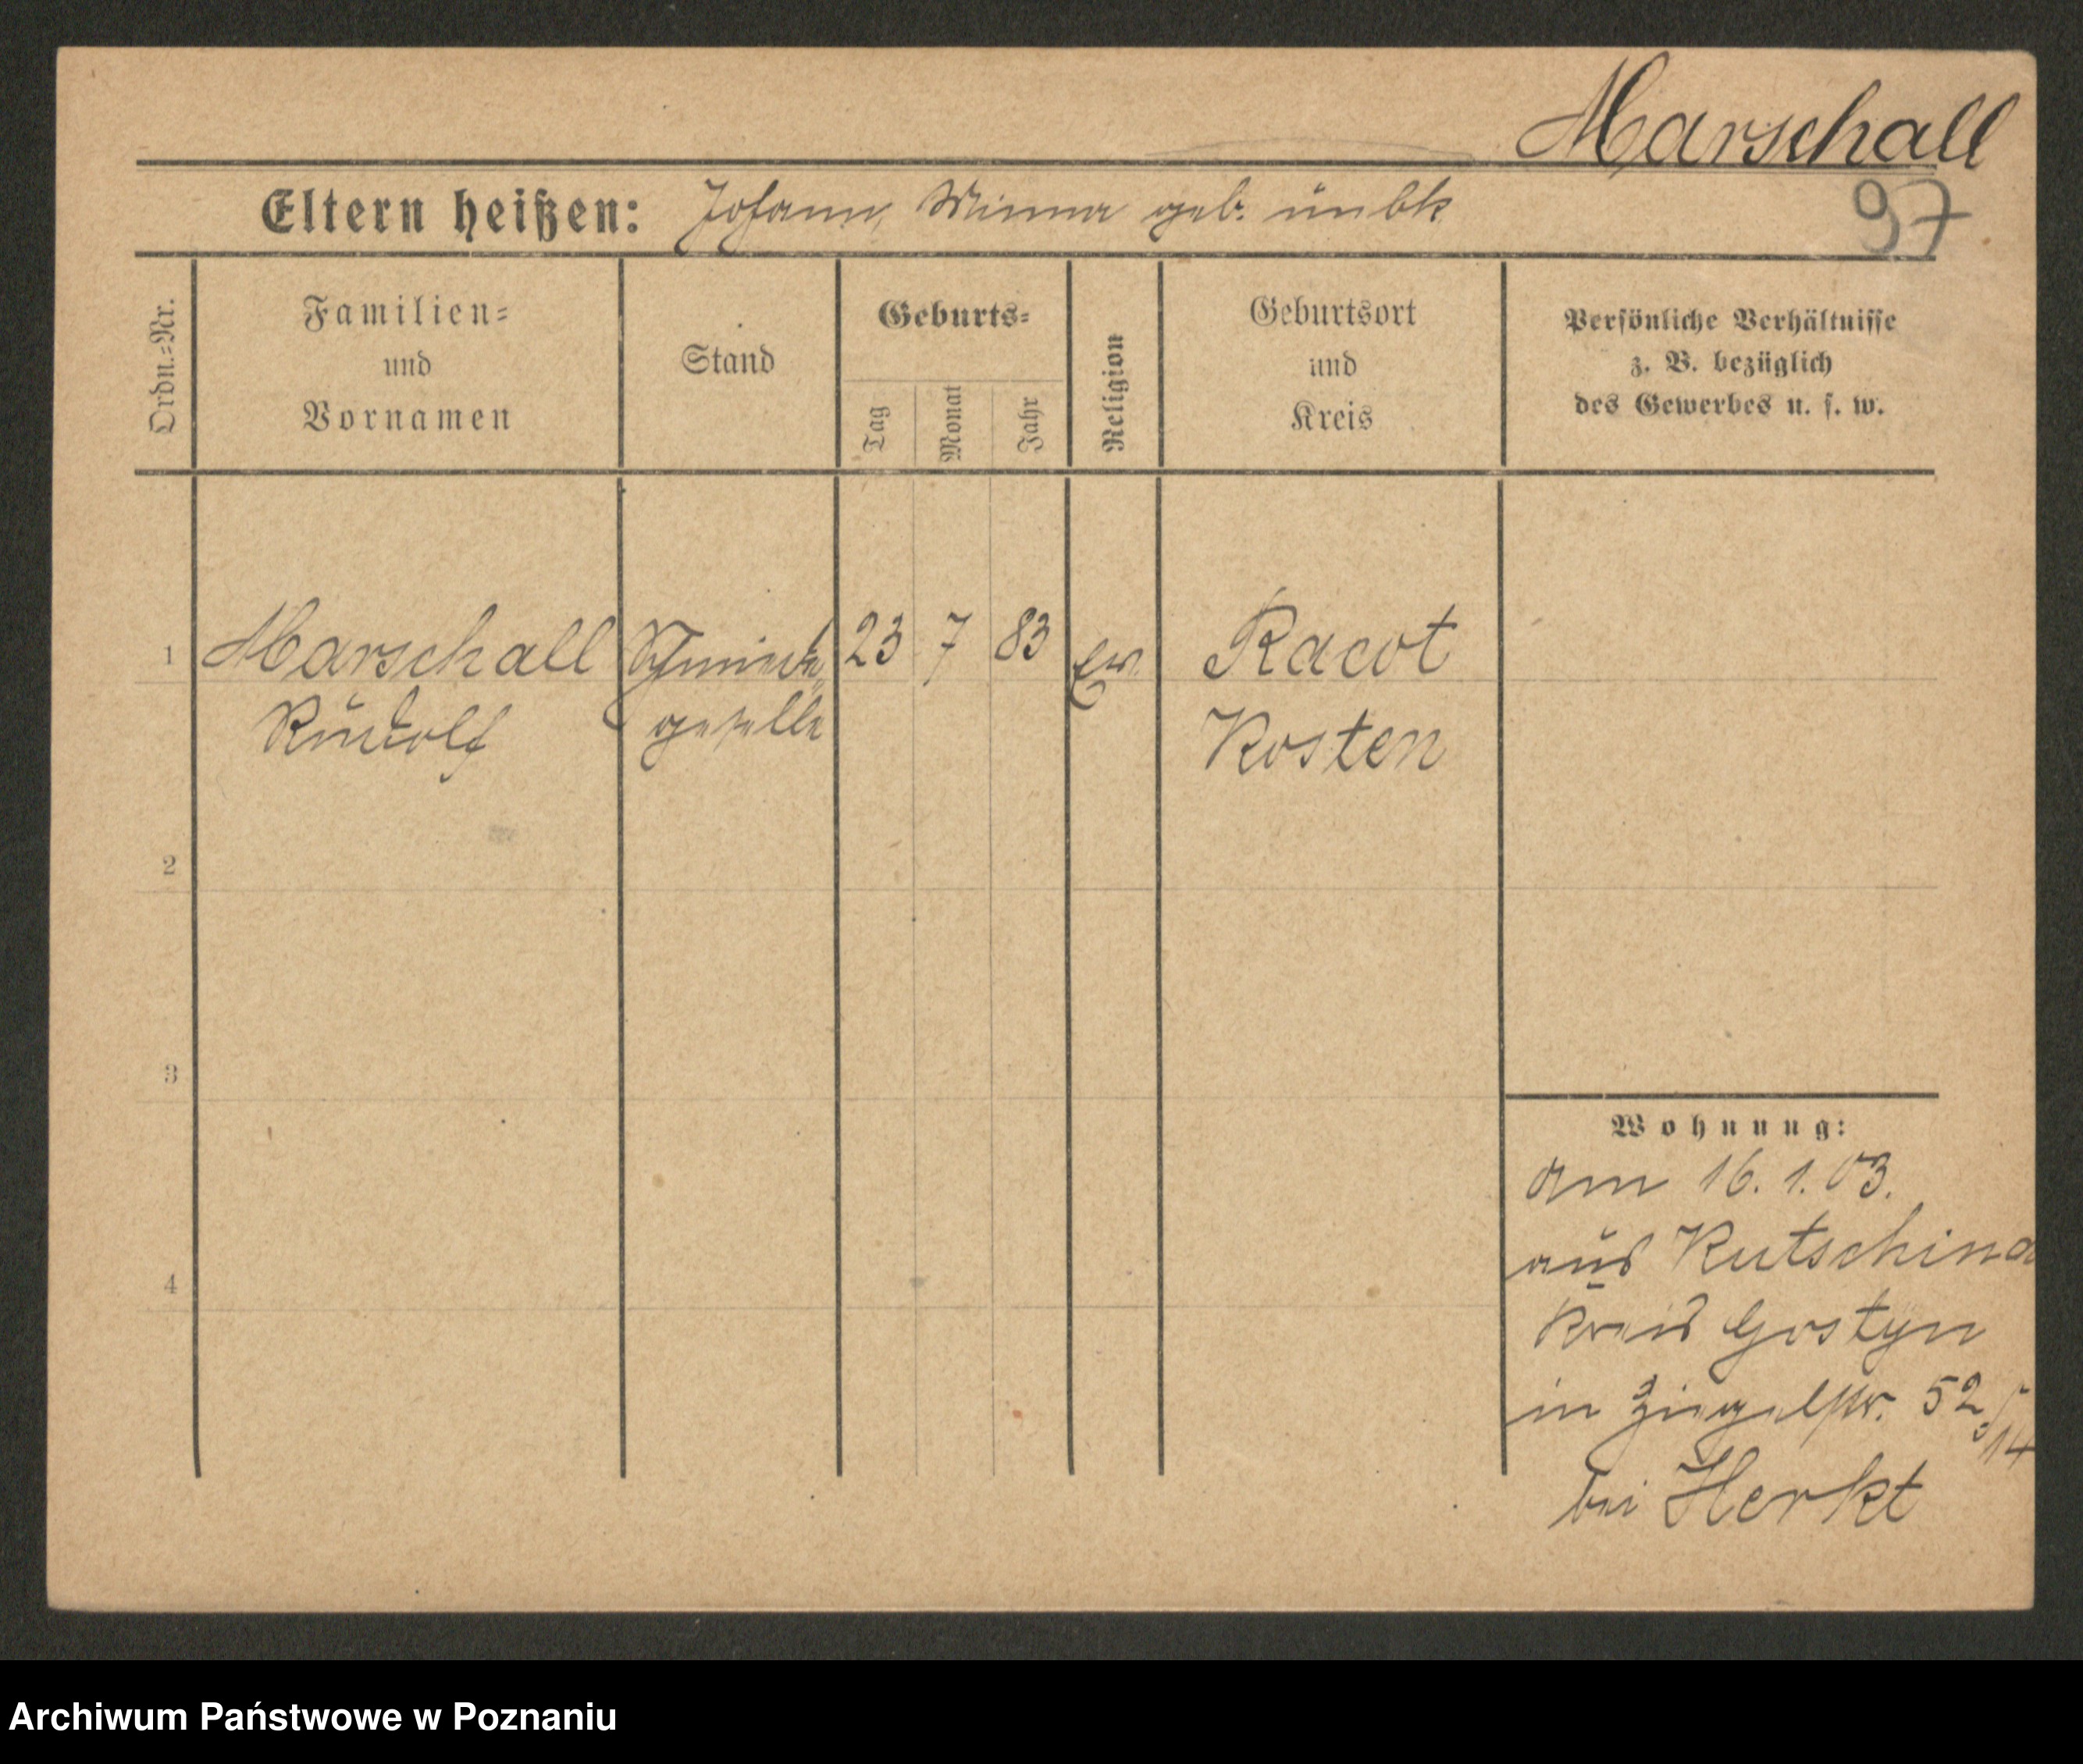 Marschall
97
Eltern heißen: Johann, Minna geb. unbk
Ordn.=Nr.
Familien=
und
Vornamen
Stand
Geburts=
Tag
Monat
Jahr
Religion
Geburtsort
und
Kreis
Persönliche Verhältnisse
z. B. bezüglich
des Gewerbes u. s. w.
1 Marschall Schmiede 23 7 83 Ev. Racot
Rudolf geselle Kosten
2
3
4
Wohnung:
am 16. 1. 03.
aus Kutschina
Kreis Gostyn
in Ziegelstr. 52./14
bei Herkt
Archiwum Państwowe w Poznaniu